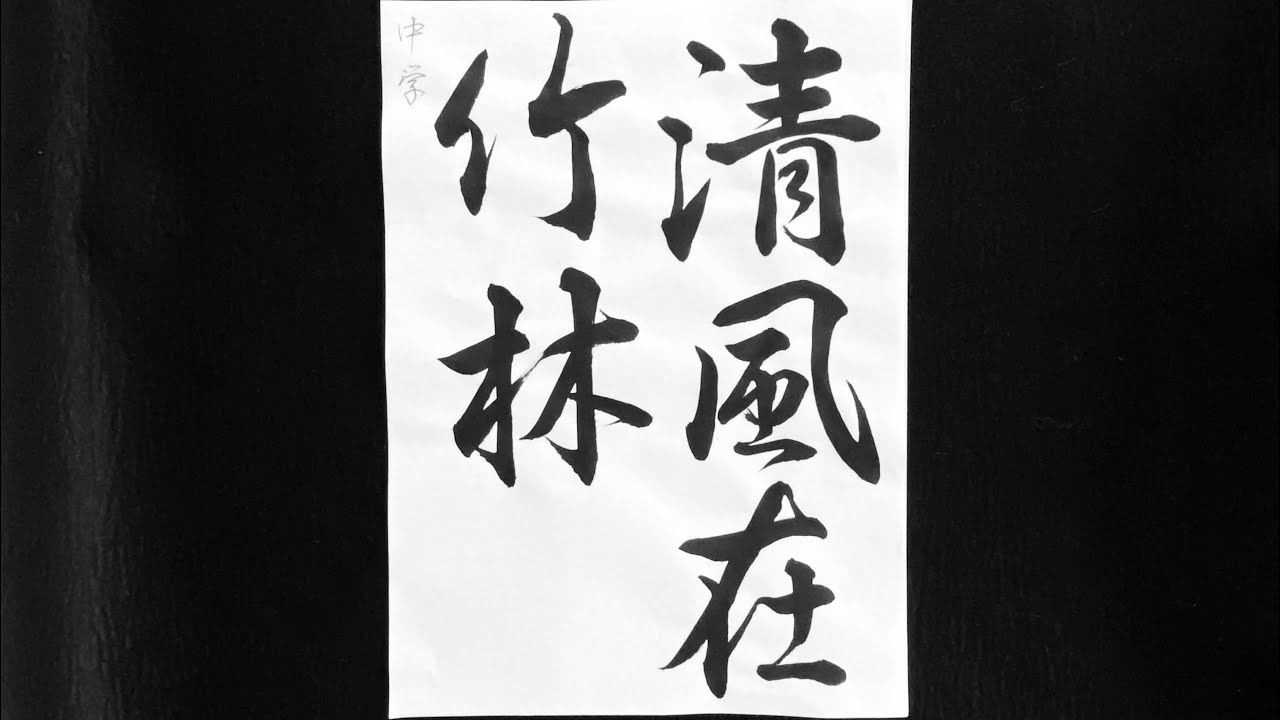 清風在
竹林
中学